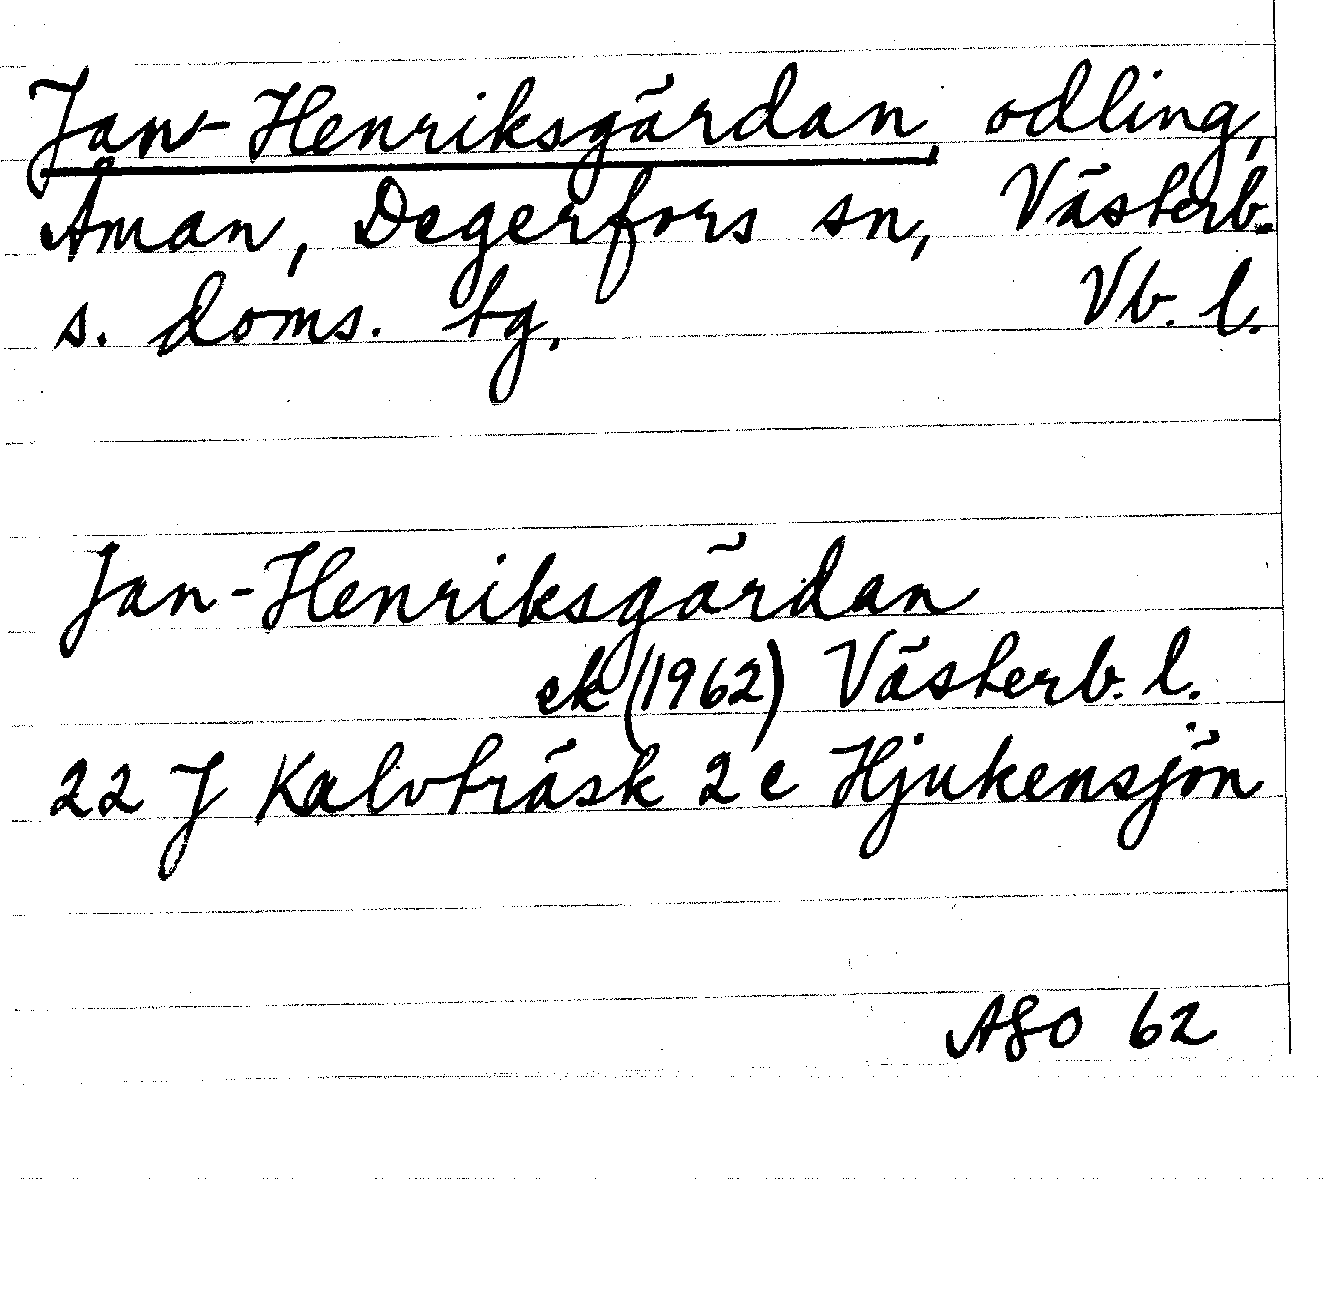 Jan-Henriksgärdan, odling,
Åman, Degerfors sn, Västerb.
s. doms. tg. Vb. l.
Jan-Henriksgärdan
ek (1962) Västerb. l.
22 J Kalvträsk 2 e Hjukensjön
ASO 62